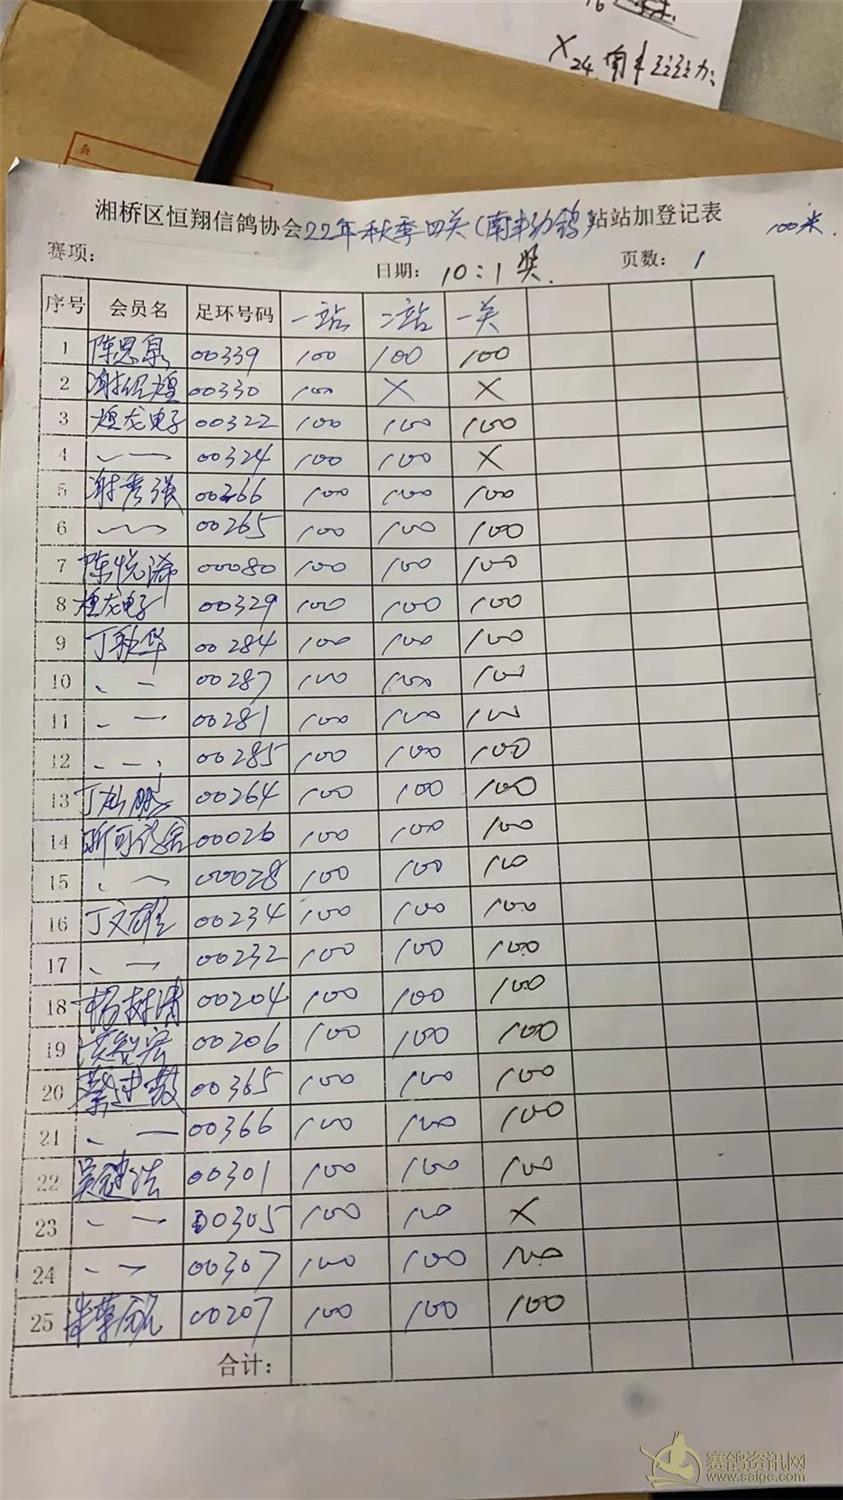 X 24. 南丰
湘桥区恒翔信鸽协会22年秋季四关(南丰幼鸽)站站加登记表 100米.
赛项: 日期: 10:1奖. 页数: 1
序号 会员名 足环号码 一站 二站 一关
1 陈思泉 00339 100 100 100
2 00330 100 X X
3 煌龙电子 00322 100 100 100
4 〃 00324 100 100 X
5 谢秀强 00266 100 100 100
6 〃 00265 100 100 100
7 陈悦 00080 100 100 100
8 煌龙电子 00329 100 100 100
9 丁秋华 00284 100 100 100
10 〃 00287 100 100 100
11 〃 00281 100 100 100
12 〃 00285 100 100 100
13 00264 100 100 100
14 00026 100 100 100
15 〃 00028 100 100 100
16 丁文雄 00234 100 100 100
17 〃 00232 100 100 100
18 杨树清 00204 100 100 100
19 00206 100 100 100
20 00365 100 100 100
21 〃 00366 100 100 100
22 吴健浩 00301 100 100 100
23 〃 00305 100 100 X
24 〃 00307 100 100 100
25 00207 100 100 100
合计:
赛鸽资讯网
www.saigc.com